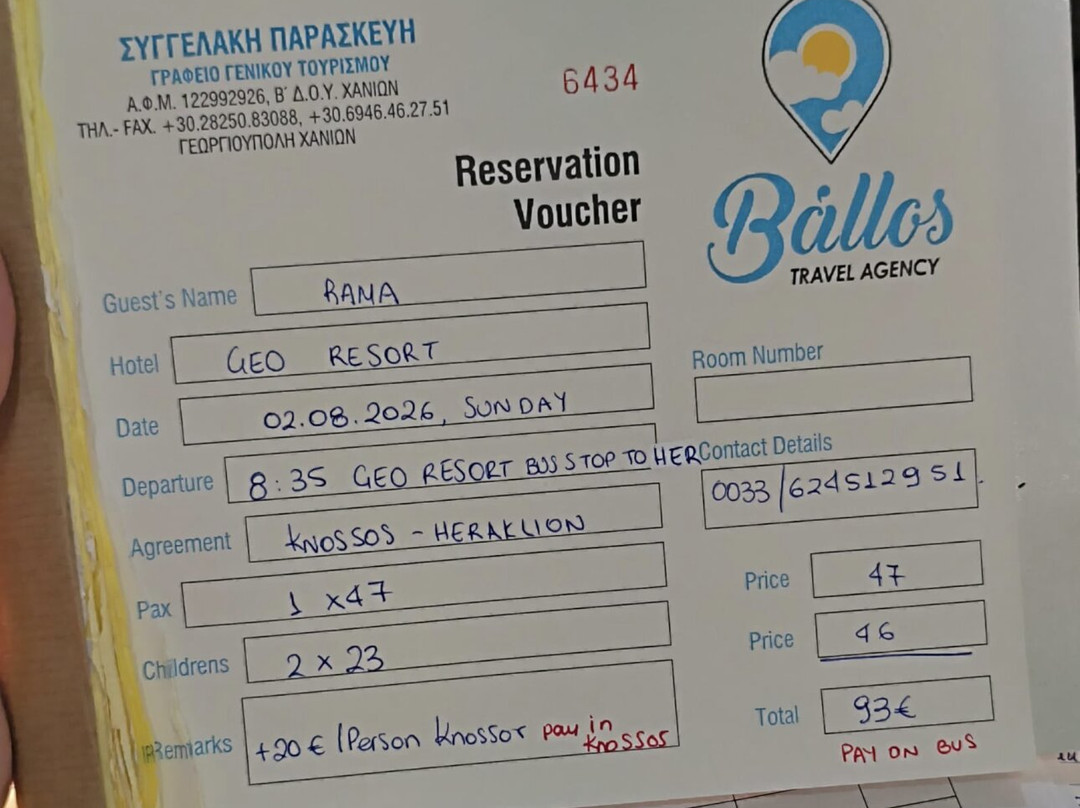 ΣΥΓΓΕΛΑΚΗ ΠΑΡΑΣΚΕΥΗ
ΓΡΑΦΕΙΟ ΓΕΝΙΚΟΥ ΤΟΥΡΙΣΜΟΥ
Α.Φ.Μ. 122992926, Β΄ Δ.Ο.Υ. ΧΑΝΙΩΝ
ΤΗΛ.- FAX. +30.28250.83088, +30.6946.46.27.51
ΓΕΩΡΓΙΟΥΠΟΛΗ ΧΑΝΙΩΝ
6434
Reservation
Voucher
Bállos
TRAVEL AGENCY
Guest's Name RAMA
Hotel GEO RESORT
Room Number
Date 02.08.2026, SUNDAY
Departure 8:35 GEO RESORT BUS STOP TO HER
Contact Details
0033/624512951.
Agreement KNOSSOS - HERAKLION
Pax 1 x47
Price 47
Childrens 2 x 23
Price 46
Remarks +20 € /Person Knossor pay in
Knossos
Total 93€
PAY ON BUS